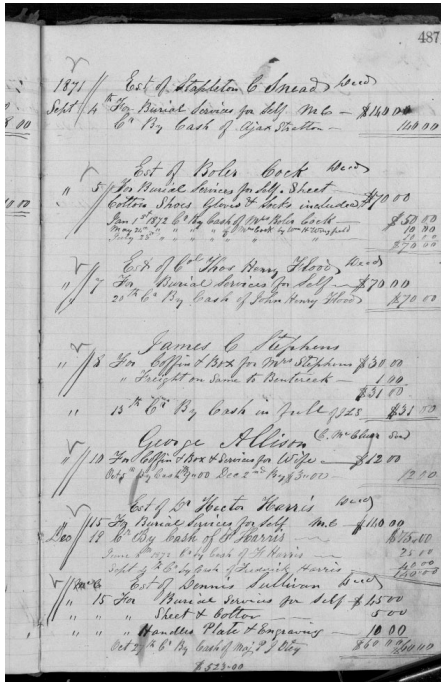 487
1871 Est of Stapleton C Snead Decd
Sept 4th For Burial Services for Self M.C. — $140 00
Cr By Cash of Ajax Stratton — 140 00
8 00
Est of Boler Cock Decd
" 5 For Burial Services for Self. Sheet
Cotton Shoes, Gloves & Socks included $70 00
Jan 1st 1872 Cr By Cash of Mrs Boler Cock — $50 00
May 25th " " " " of Mrs Cock by Wm H Wingfield 10 00
July 25th " " " " " " 10 00
$70 00
Est of Col Thos Henry Flood Decd
" 7 For Burial Services for Self — $70 00
20th Cr By Cash of John Henry Flood $70 00
James C Stephens
" 8 For Coffin & Box for Mrs Stephens $30 00
" Freight on Same to Bentcreek — 1 00
$31 00
" 13th Cr By Cash in full $31 00
George Allison
" 10 For Coffin & Box & Services for Wife — $12 00
By Cash Dec 2nd By 12 00
Est of Dr Hector Harris Decd
" 15 For Burial Services for Self M.C. $140 00
Dec 19 Cr By Cash of Harris —
June 1872 Cr by Cash of Harris — 25 00
Sept 4th Cr by Cash of Frederick Harris 40 00
140 00
Est of Dennis Sullivan Decd
" 15 For Burial Services for Self $45 00
" " " Sheet & Cotton — 5 00
" " " Handles Plate & Engraving — 10 00
Oct 27th Cr By Cash of Maj P J Otey $60 00
$523.00